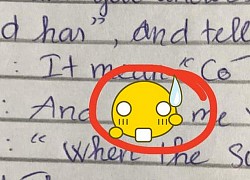 d has", and tell
: It mean "Co
: And me
: "When the So